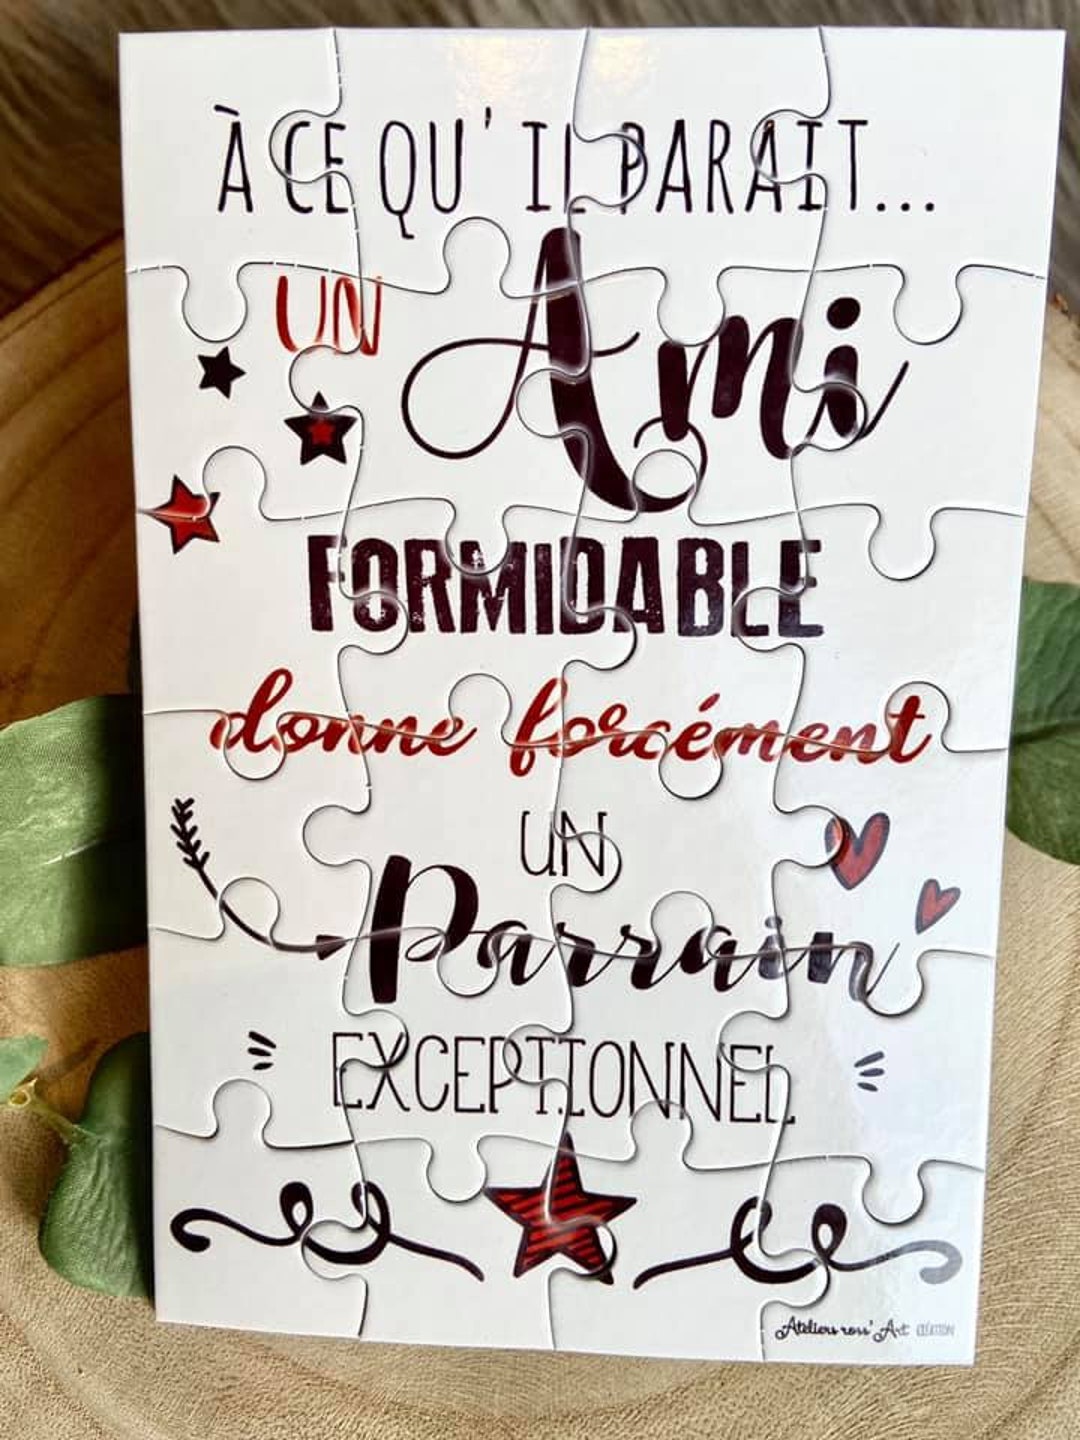 À CE QU' IL PARAIT...
UN Ami
FORMIDABLE
donne forcément
UN
Parrain
EXCEPTIONNEL
Ateliers ross' Art CRÉATION